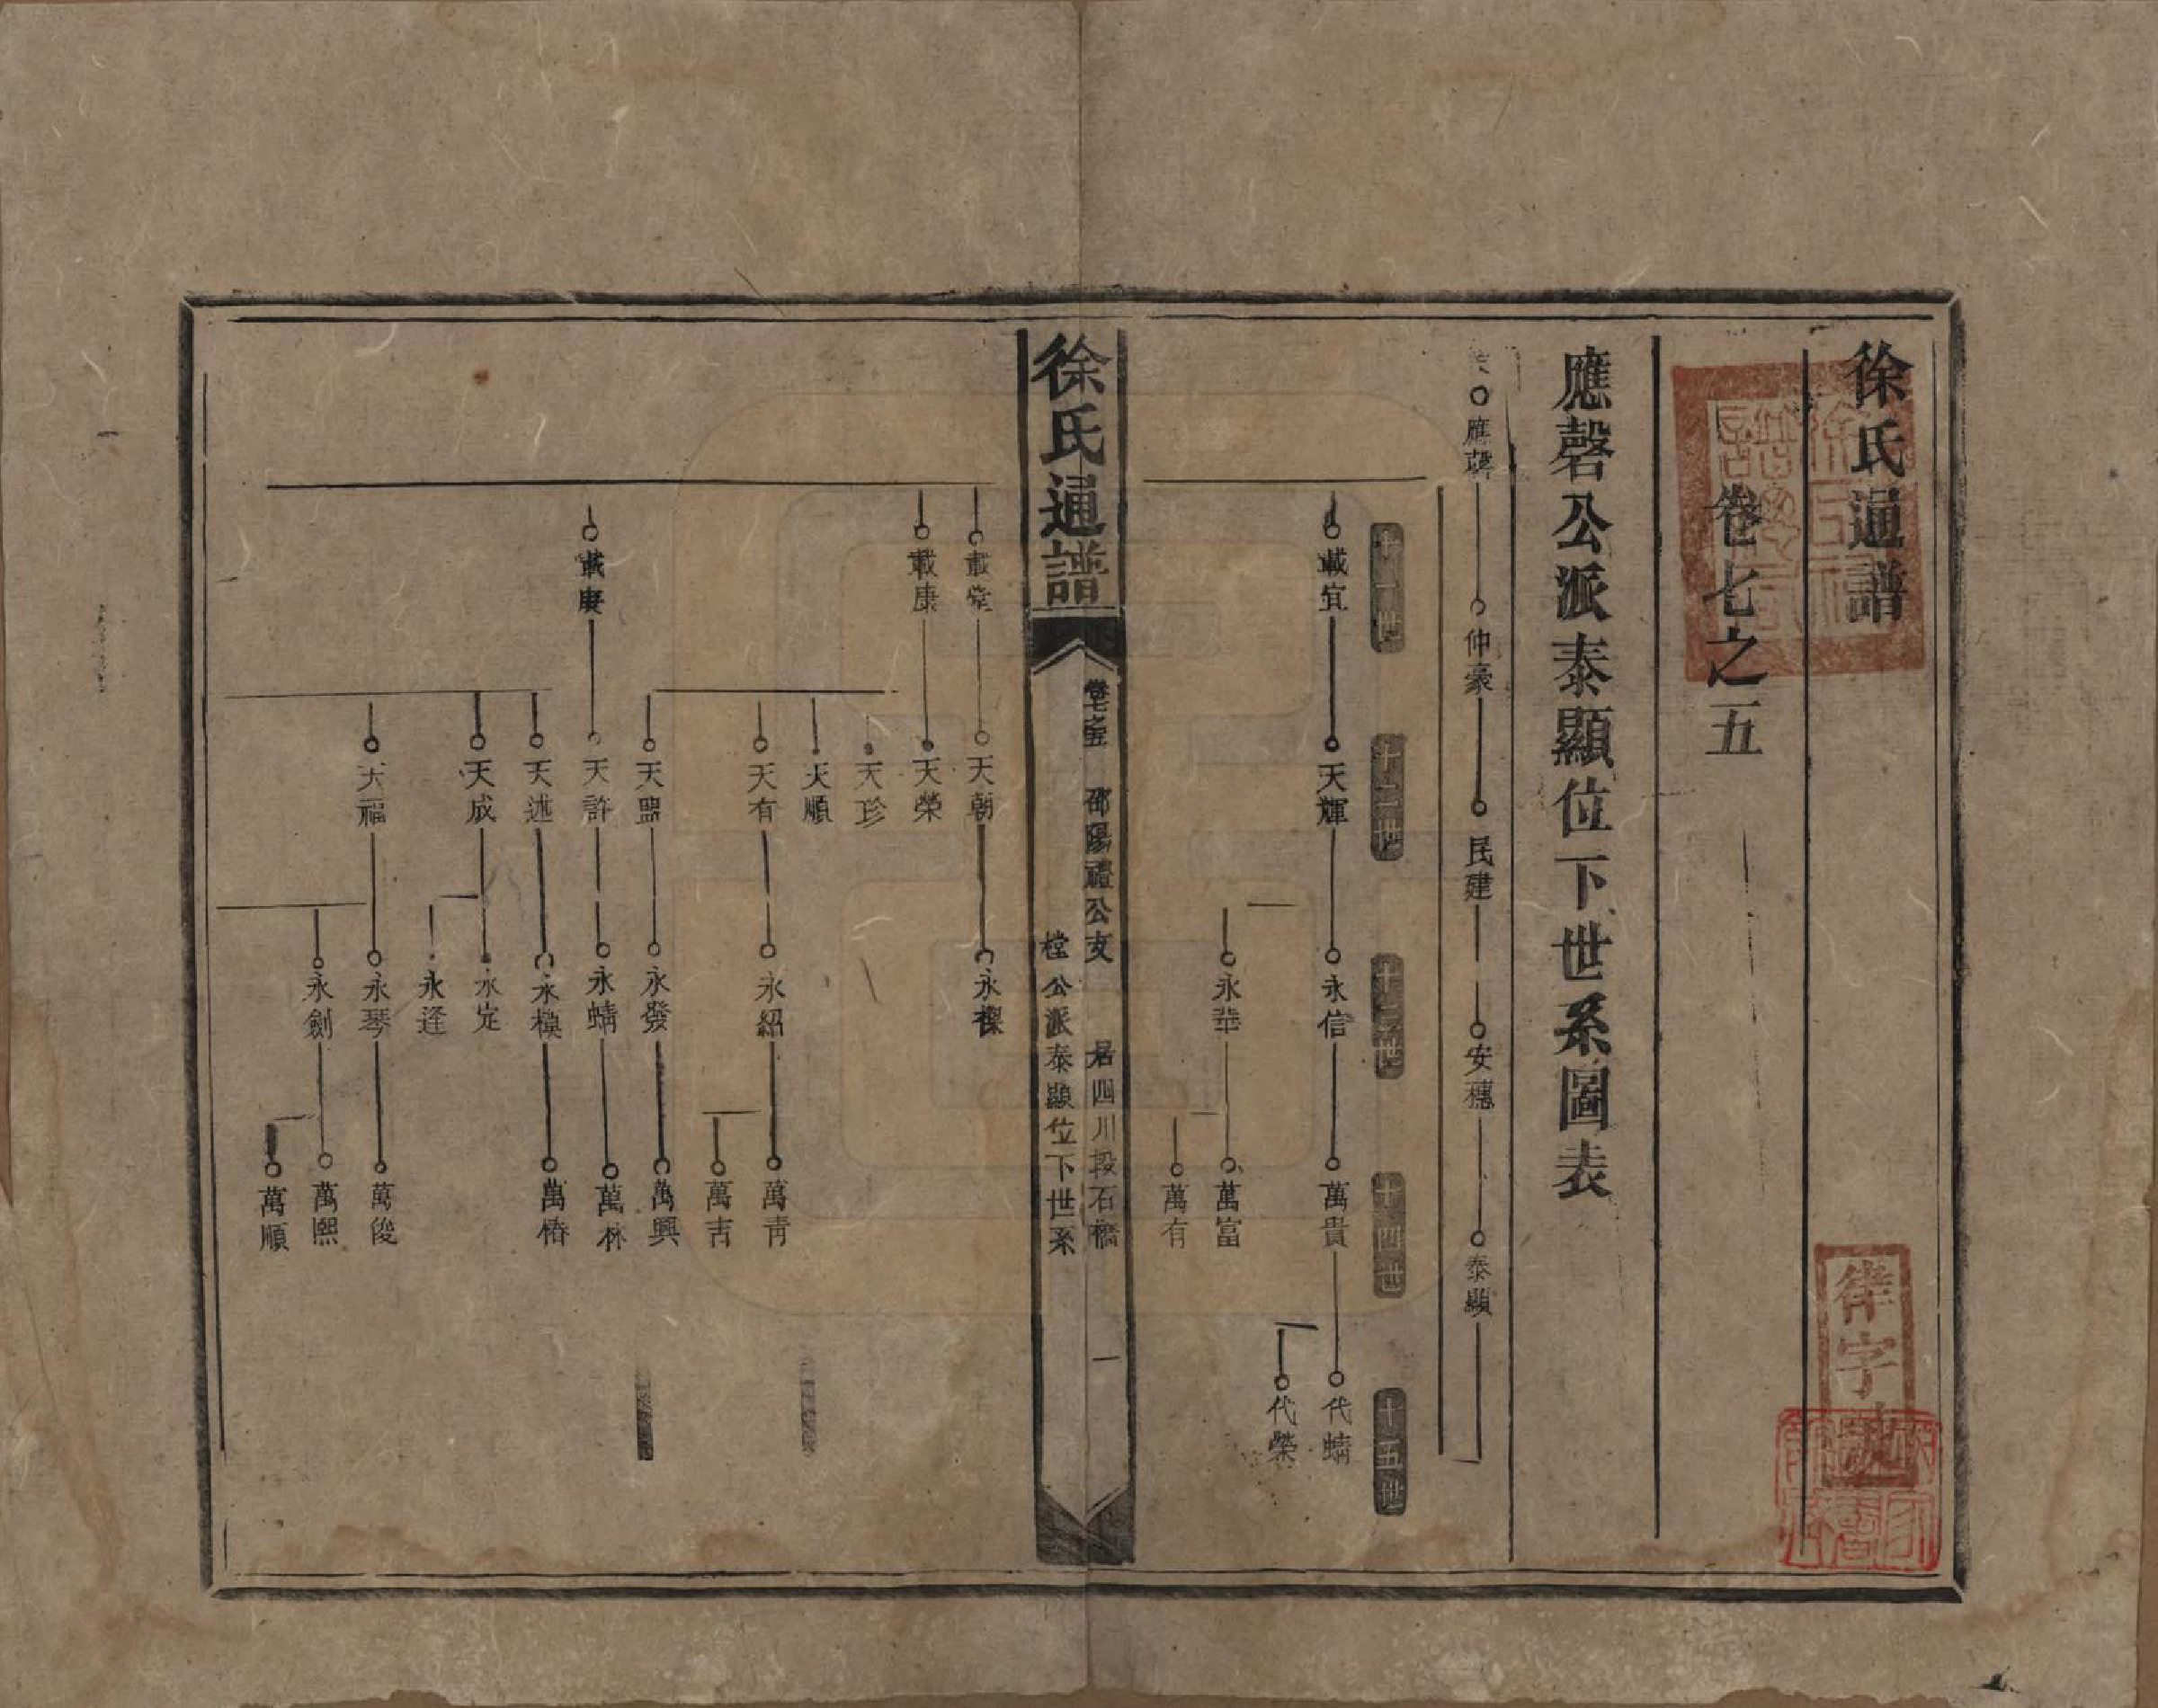 徐氏通譜
卷七之五
應磬公派泰顯位下世系圖表
應磬 仲豪 民建 安穗 泰顯
十一世 十二世 十三世 十四世 十五世
載宜 天輝 永信 萬貴 代蜻
代榮
永華 萬富
萬有
徐氏通譜
卷七之五 邵陽禮公支 居四川段石橋
公派泰顯位下世系 一
載堂 天朝 永楳
載康 天榮
天珍
天順
天有 永紹 萬青
萬吉
天盟 永發 萬興
載賡 天許 永蜻 萬林
天述 永模 萬椿
天成 永定
永逢
天福 永琴 萬俊
永劍 萬熙
萬順